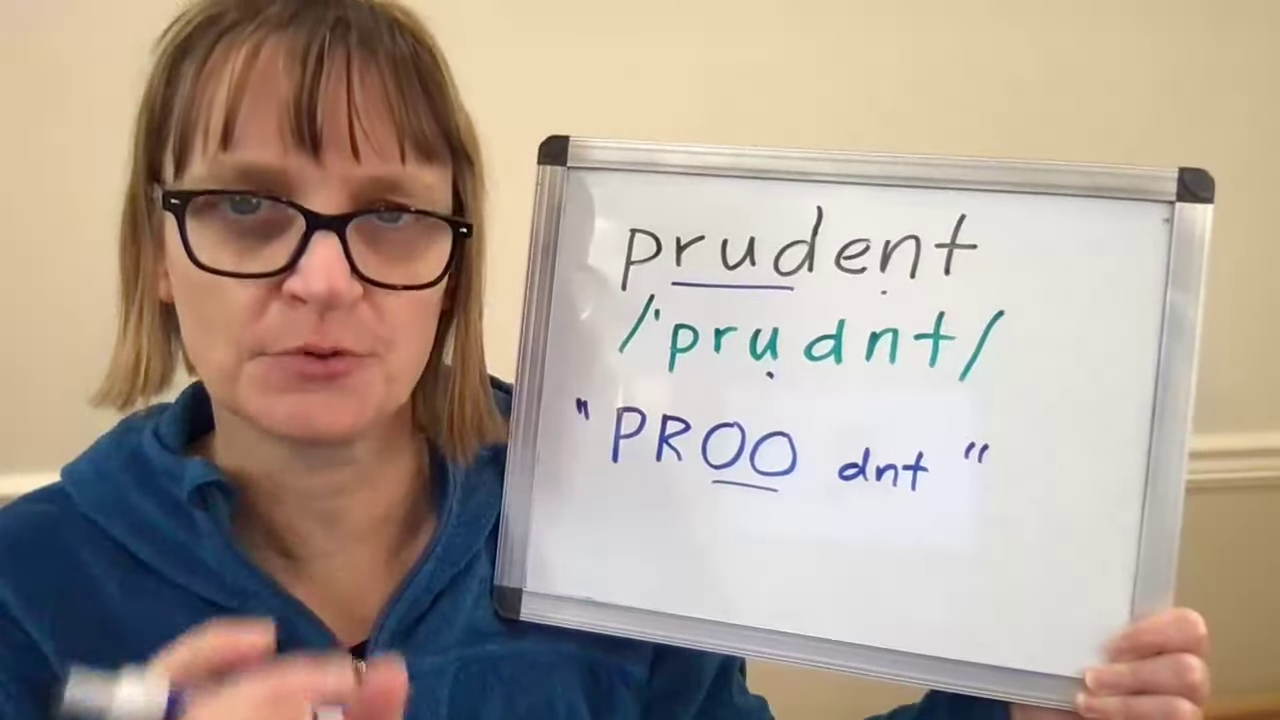 prudent
/ˈprudnt/
"PROO dnt"